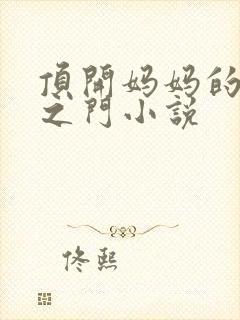 頂開妈妈的
之門小説
佟熙